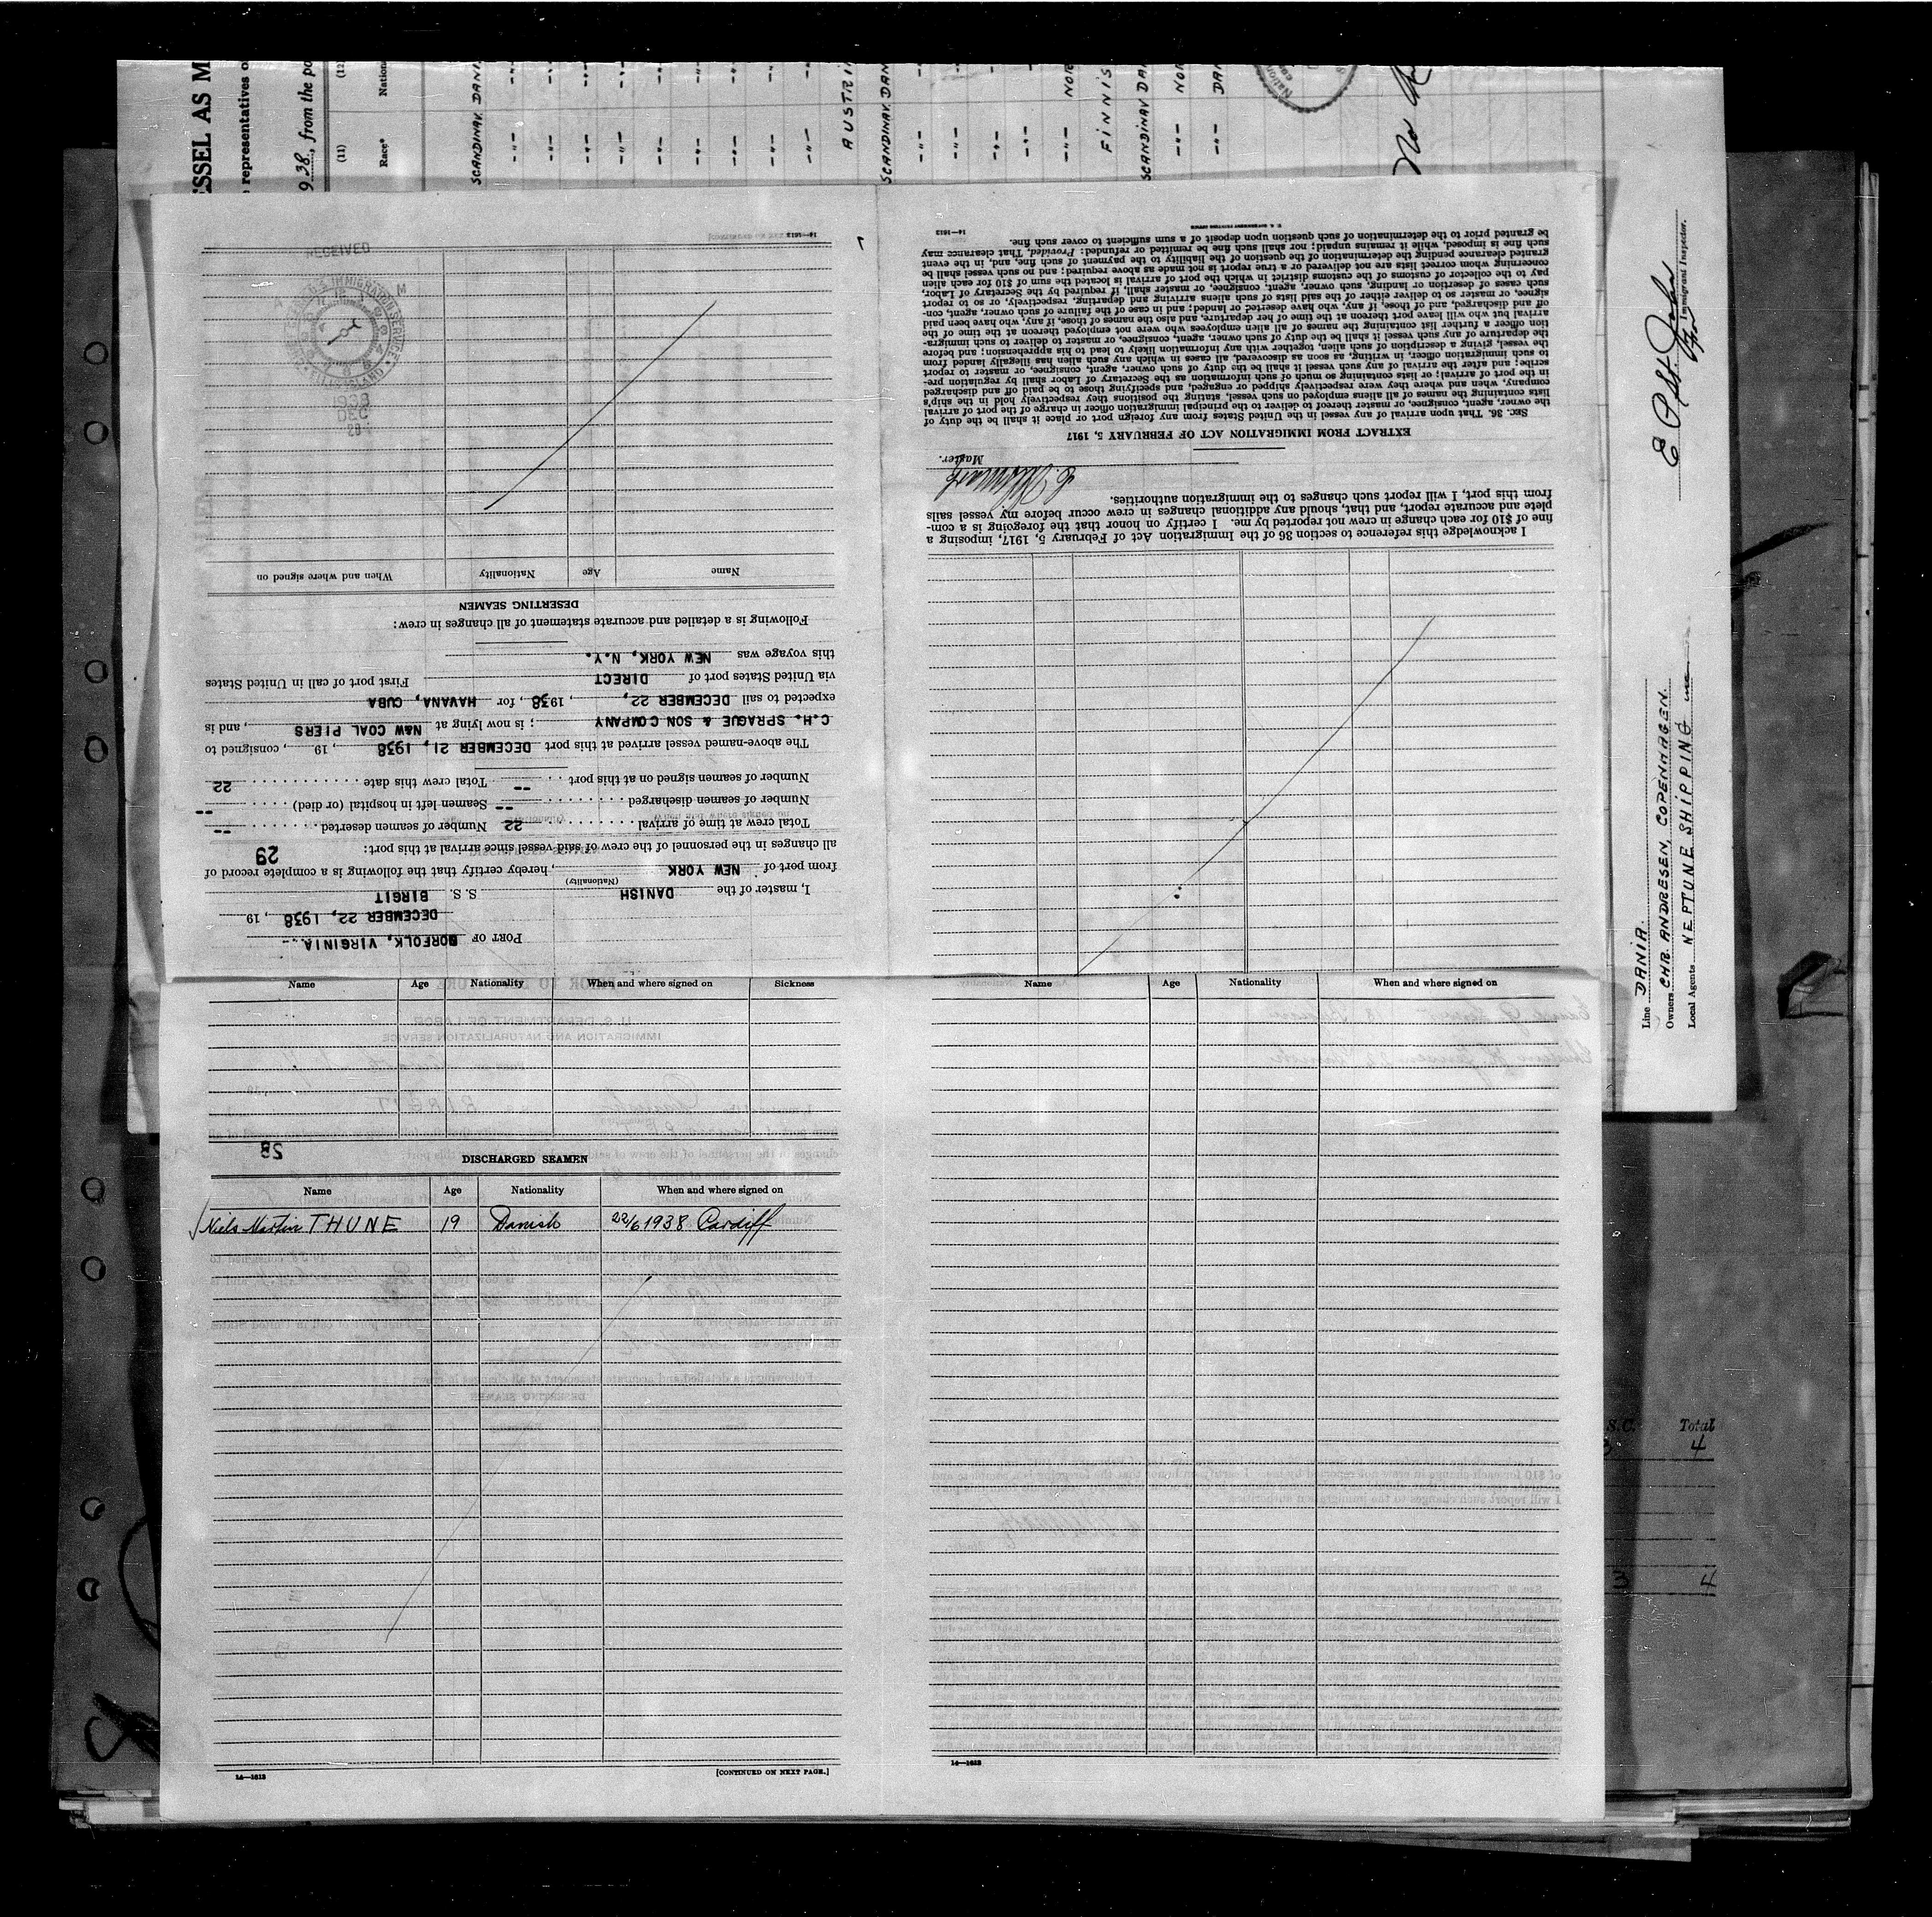 SSEL AS M
representatives o
938, from the po
(11)
(12)
Race*
Nation
SCANDINAV. DANI
-"- -"-
-"- -"-
-"- -"-
-"- -"-
-"- -"-
-"- -"-
-"- -"-
-"- -"-
AUSTRI
SCANDINAV. DAN
-"- -"-
-"- -"-
-"- -"-
-"-
-"- NOR
FINNIS
SCANDINAV DA
-"- NOR
-"- DAN
No
PORT OF NORFOLK, VIRGINIA
DECEMBER 22, 1938, 19
I, master of the DANISH S. S. BIRGIT
(Nationality)
from port of NEW YORK, hereby certify that the following is a complete record of
all changes in the personnel of the crew of said vessel since arrival at this port:
29
Total crew at time of arrival 22 Number of seamen deserted --
Number of seamen discharged -- Seamen left in hospital (or died) --
Number of seamen signed on at this port -- Total crew this date 22
The above-named vessel arrived at this port DECEMBER 21, 1938, 19, consigned to
C.H. SPRAGUE & SON COMPANY; is now lying at N&W COAL PIERS, and is
expected to sail DECEMBER 22, 1938, for HAVANA, CUBA
via United States port of DIRECT First port of call in United States
this voyage was NEW YORK, N.Y.
Following is a detailed and accurate statement of all changes in crew:
DESERTING SEAMEN
Name Age Nationality When and where signed on
RECEIVED
U.S. IMMIGRATION SERVICE
ELLIS ISLAND
M
1938
DEC
14—1613
I acknowledge this reference to section 36 of the Immigration Act of February 5, 1917, imposing a
fine of $10 for each change in crew not reported by me. I certify on honor that the foregoing is a com-
plete and accurate report, and that, should any additional changes in crew occur before my vessel sails
from this port, I will report such changes to the immigration authorities.
Master.
EXTRACT FROM IMMIGRATION ACT OF FEBRUARY 5, 1917
SEC. 36. That upon arrival of any vessel in the United States from any foreign port or place it shall be the duty of
the owner, agent, consignee, or master thereof to deliver to the principal immigration officer in charge of the port of arrival
lists containing the names of all aliens employed on such vessel, stating the positions they respectively hold in the ship's
company, when and where they were respectively shipped or engaged, and specifying those to be paid off and discharged
in the port of arrival; or lists containing so much of such information as the Secretary of Labor shall by regulation pre-
scribe; and after the arrival of any such vessel it shall be the duty of such owner, agent, consignee, or master to report
to such immigration officer, in writing, as soon as discovered, all cases in which any such alien has illegally landed from
the vessel, giving a description of such alien, together with any information likely to lead to his apprehension; and before
the departure of any such vessel it shall be the duty of such owner, agent, consignee, or master to deliver to such immigra-
tion officer a further list containing the names of all alien employees who were not employed thereon at the time of the
arrival but who will leave port thereon at the time of her departure, and also the names of those, if any, who have been paid
off and discharged, and of those, if any, who have deserted or landed; and in case of the failure of such owner, agent, con-
signee, or master so to deliver either of the said lists of such aliens arriving and departing, respectively, or so to report
such cases of desertion or landing, such owner, agent, consignee, or master shall, if required by the Secretary of Labor,
pay to the collector of customs of the customs district in which the port of arrival is located the sum of $10 for each alien
concerning whom correct lists are not delivered or a true report is not made as above required; and no such vessel shall be
granted clearance pending the determination of the question of the liability to the payment of such fine, and, in the event
such fine is imposed, while it remains unpaid; nor shall such fine be remitted or refunded: Provided, That clearance may
be granted prior to the determination of such question upon deposit of a sum sufficient to cover such fine.
14—1613
Name Age Nationality When and where signed on Sickness
28
DISCHARGED SEAMEN
Name Age Nationality When and where signed on
Niels Martin THUNE 19 Danish 22/6 1938 Cardiff
14—1613
[CONTINUED ON NEXT PAGE.]
Name Age Nationality When and where signed on
14—1613
Immigrant Inspector.
Line DANIA
Owners CHR. ANDRESEN, COPENHAGEN.
Local Agents NEPTUNE SHIPPING
S.C. Total
3 4
3 4